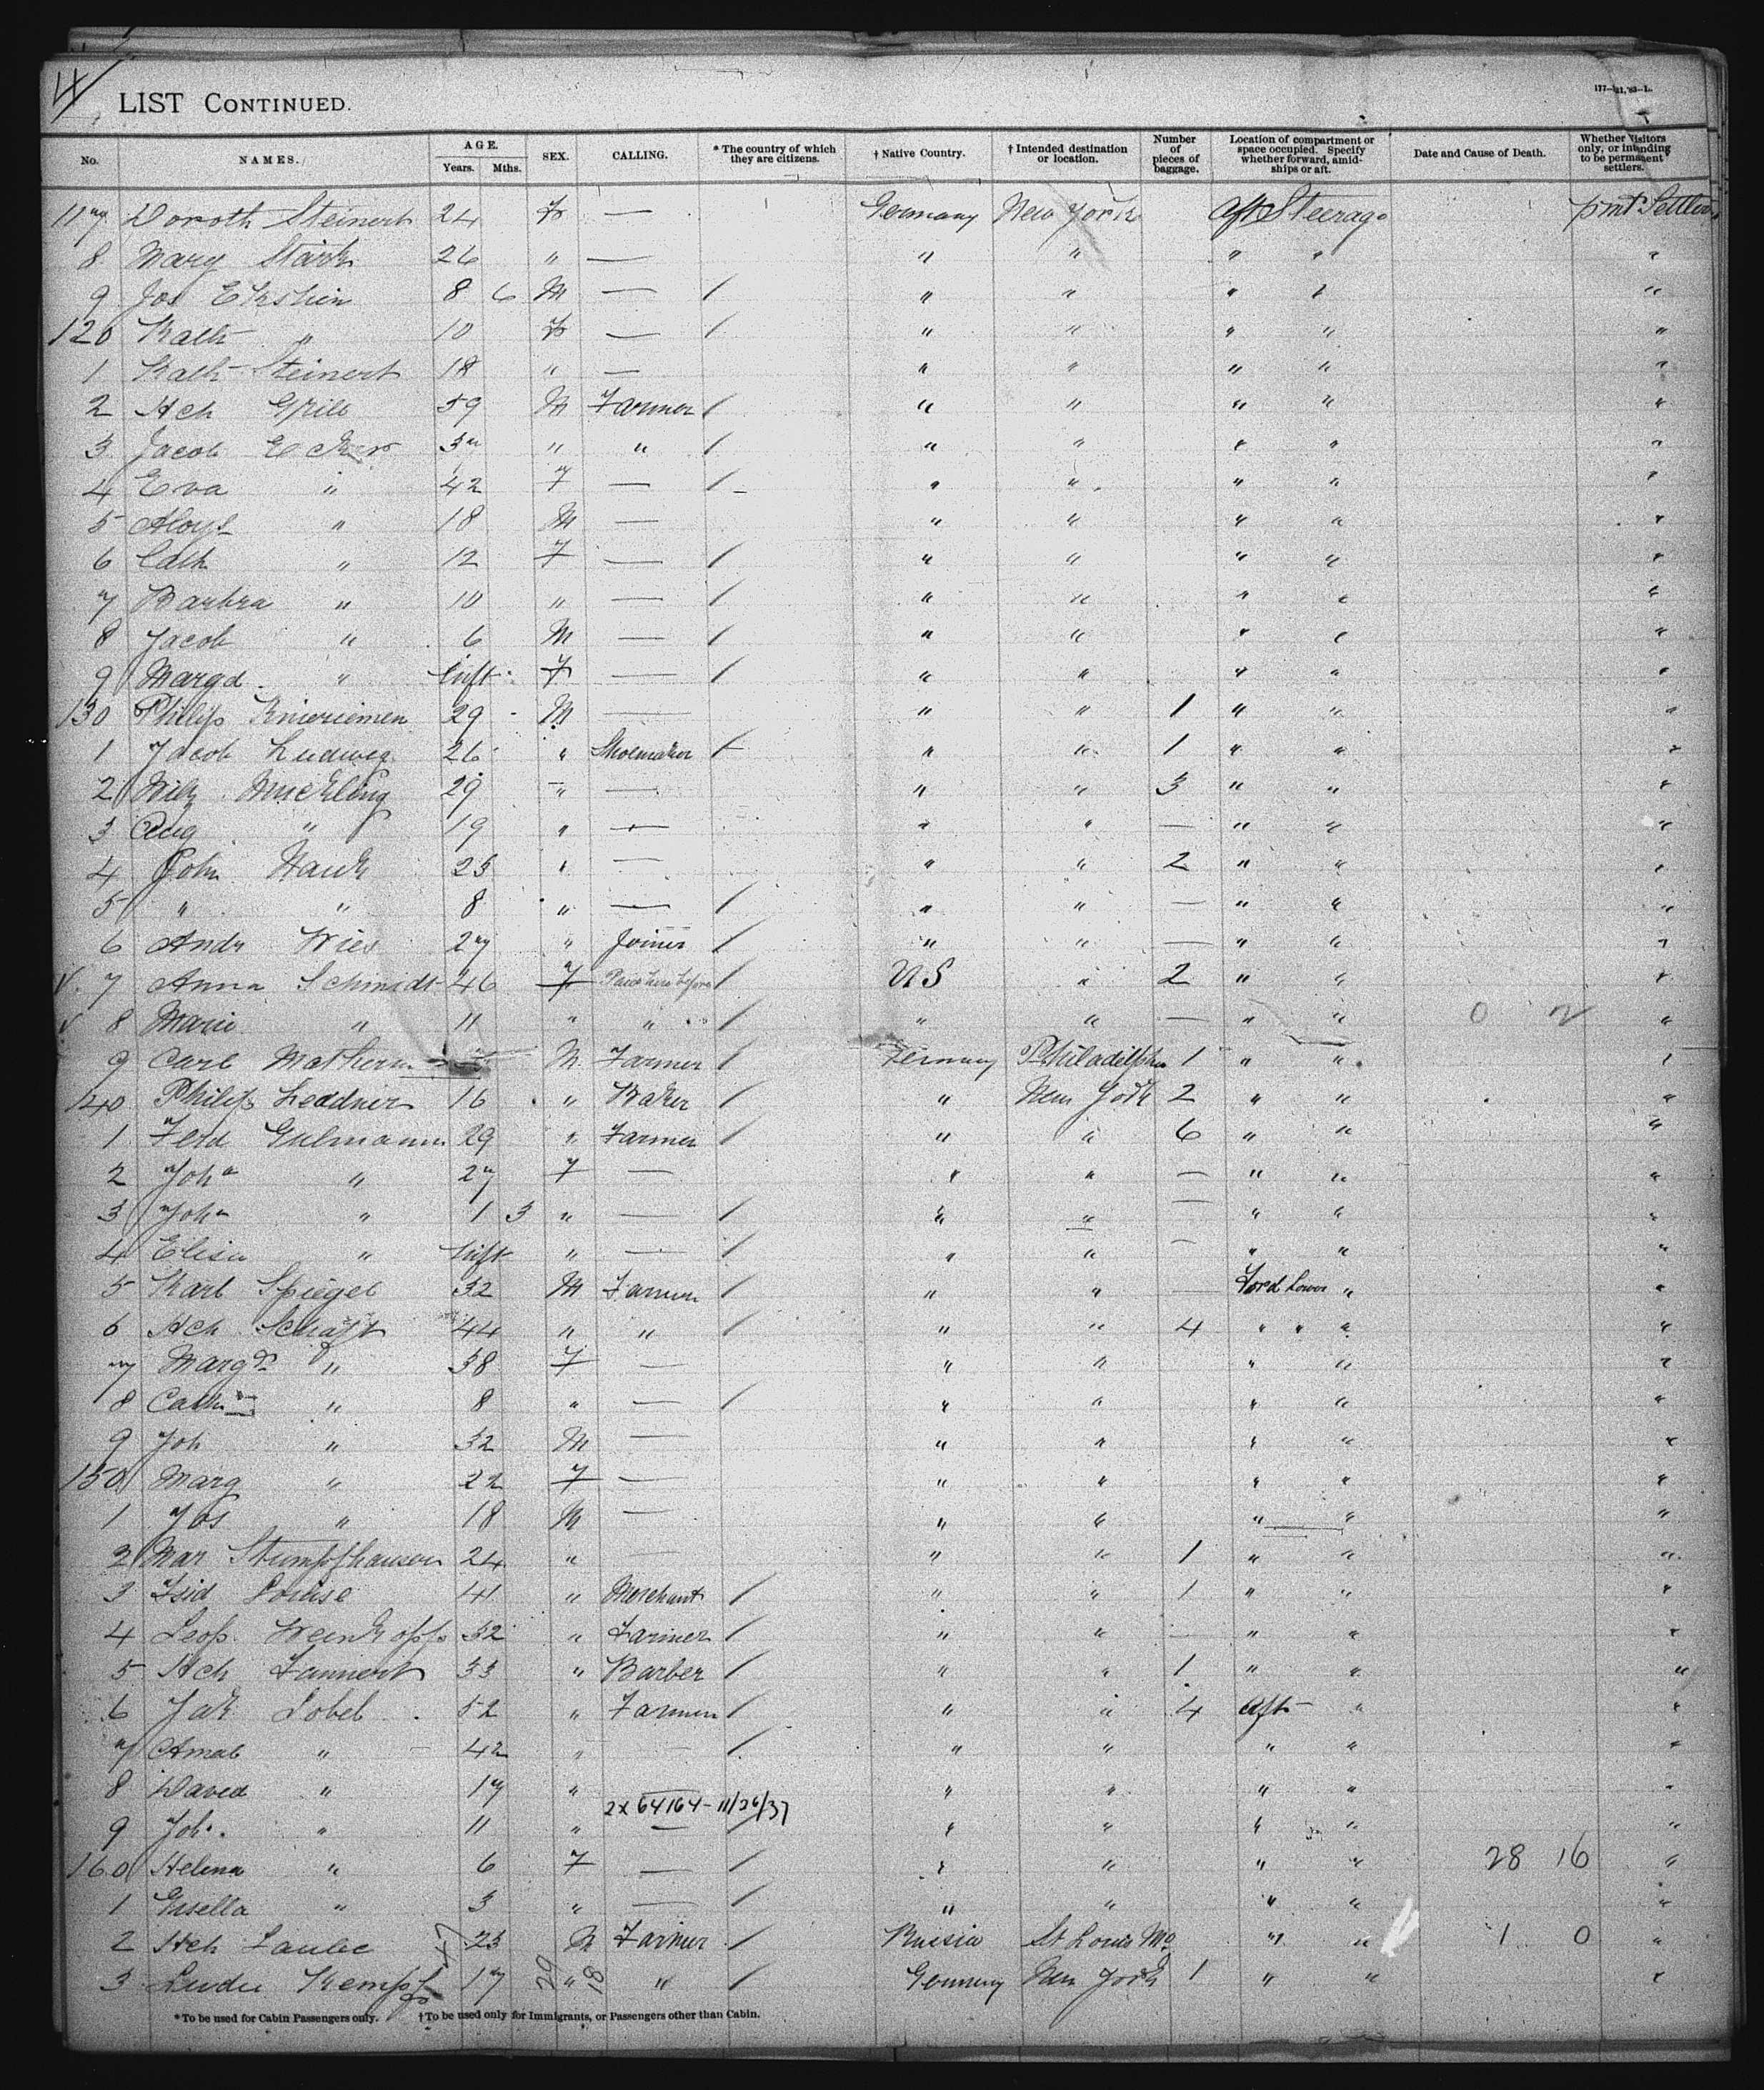 4
LIST CONTINUED.
177—121,'83—L.
No. NAMES. AGE. Years. Mths. SEX. CALLING. * The country of which they are citizens. † Native Country. † Intended destination or location. Number of pieces of baggage. Location of compartment or space occupied. Specify whether forward, amidships or aft. Date and Cause of Death. Whether visitors only, or intending to be permanent settlers.
117 Doroth Steinert 24 F — Germany New York Aft Steerage pmt Settlers
8 Mary Stark 26 " — " " " " "
9 Jos Ekstein 8 6 M — / " " " " "
120 Kath " 10 F — / " " " " "
1 Kath Steinert 18 " — " " " " "
2 Hch Grill 59 M Farmer / " " " " "
3 Jacob Ecker " " / " " " " "
4 Eva " 42 F — / " " " " "
5 Aloys " 18 M — " " " " "
6 Cath " 12 F — / " " " " "
7 Barbra " 10 " — / " " " " "
8 Jacob " 6 M — / " " " " "
9 Margd " Inft F — / " " " " "
130 Philip Knieriemen 29 M — " " 1 " " "
1 Jacob Ludwig 26 " Shoemaker / " " 1 " " "
2 29 " — " " 3 " " "
3 Aug " 19 " — " " — " " "
4 John Hauk 25 " — " " 2 " " "
5 " " 8 " — / " " — " " "
6 Andr Wies 27 " Joiner / " " — " " "
7 Anna Schmidt 46 F before / US " 2 " " "
8 Marie " 11 " " / " " — " " 0 2 "
9 Carl M. Farmer / Germany Philadelphia 1 " " "
140 Philip Leddner 16 " Baker / " New York 2 " " "
1 Ferd Gulmann 29 " Farmer / " " 6 " " "
2 Joha " 27 F — " " — " " "
3 Joha " 1 3 " — / " " — " " "
4 Elisa " Inft " — / " " — " " "
5 Karl Spiegel 32 M Farmer / " " — Ford Lower " "
6 Hch Schaft 44 " " / " " 4 " " " "
7 Margd " 38 F — " " " " "
8 Cath " 8 " — / " " " " "
9 Joh " 32 M — " " " " "
150 Marg " 22 F — " " " " "
1 Jos " 18 M — " " " " "
2 Mar Stumpfhauser 24 " — " " 1 " " "
3 Isid Louise 41 " Merchant / " " 1 " " "
4 Leop. Weinkopf 32 " Farmer / " " — " " "
5 Hch Fannert 33 " Barber / " " 1 " " "
6 Jak Lobel 52 " Farmer / " " 4 Aft " "
7 Amal " 42 " — / " " " " "
8 David " 17 " — " " " " "
2X 64164 - 11/26/37
9 Joh. " 11 " — / " " " " "
160 Helena " 6 F — / " " " " 28 16 "
1 Gisella " 3 " — / " " " " "
2 Hch Laube 23 M Farmer / Russia St Louis Mo " " 1 0 "
3 Ludw Kempf 17 " " / Germany New York 1 " " "
47 29 18
*To be used for Cabin Passengers only. †To be used only for Immigrants, or Passengers other than Cabin.